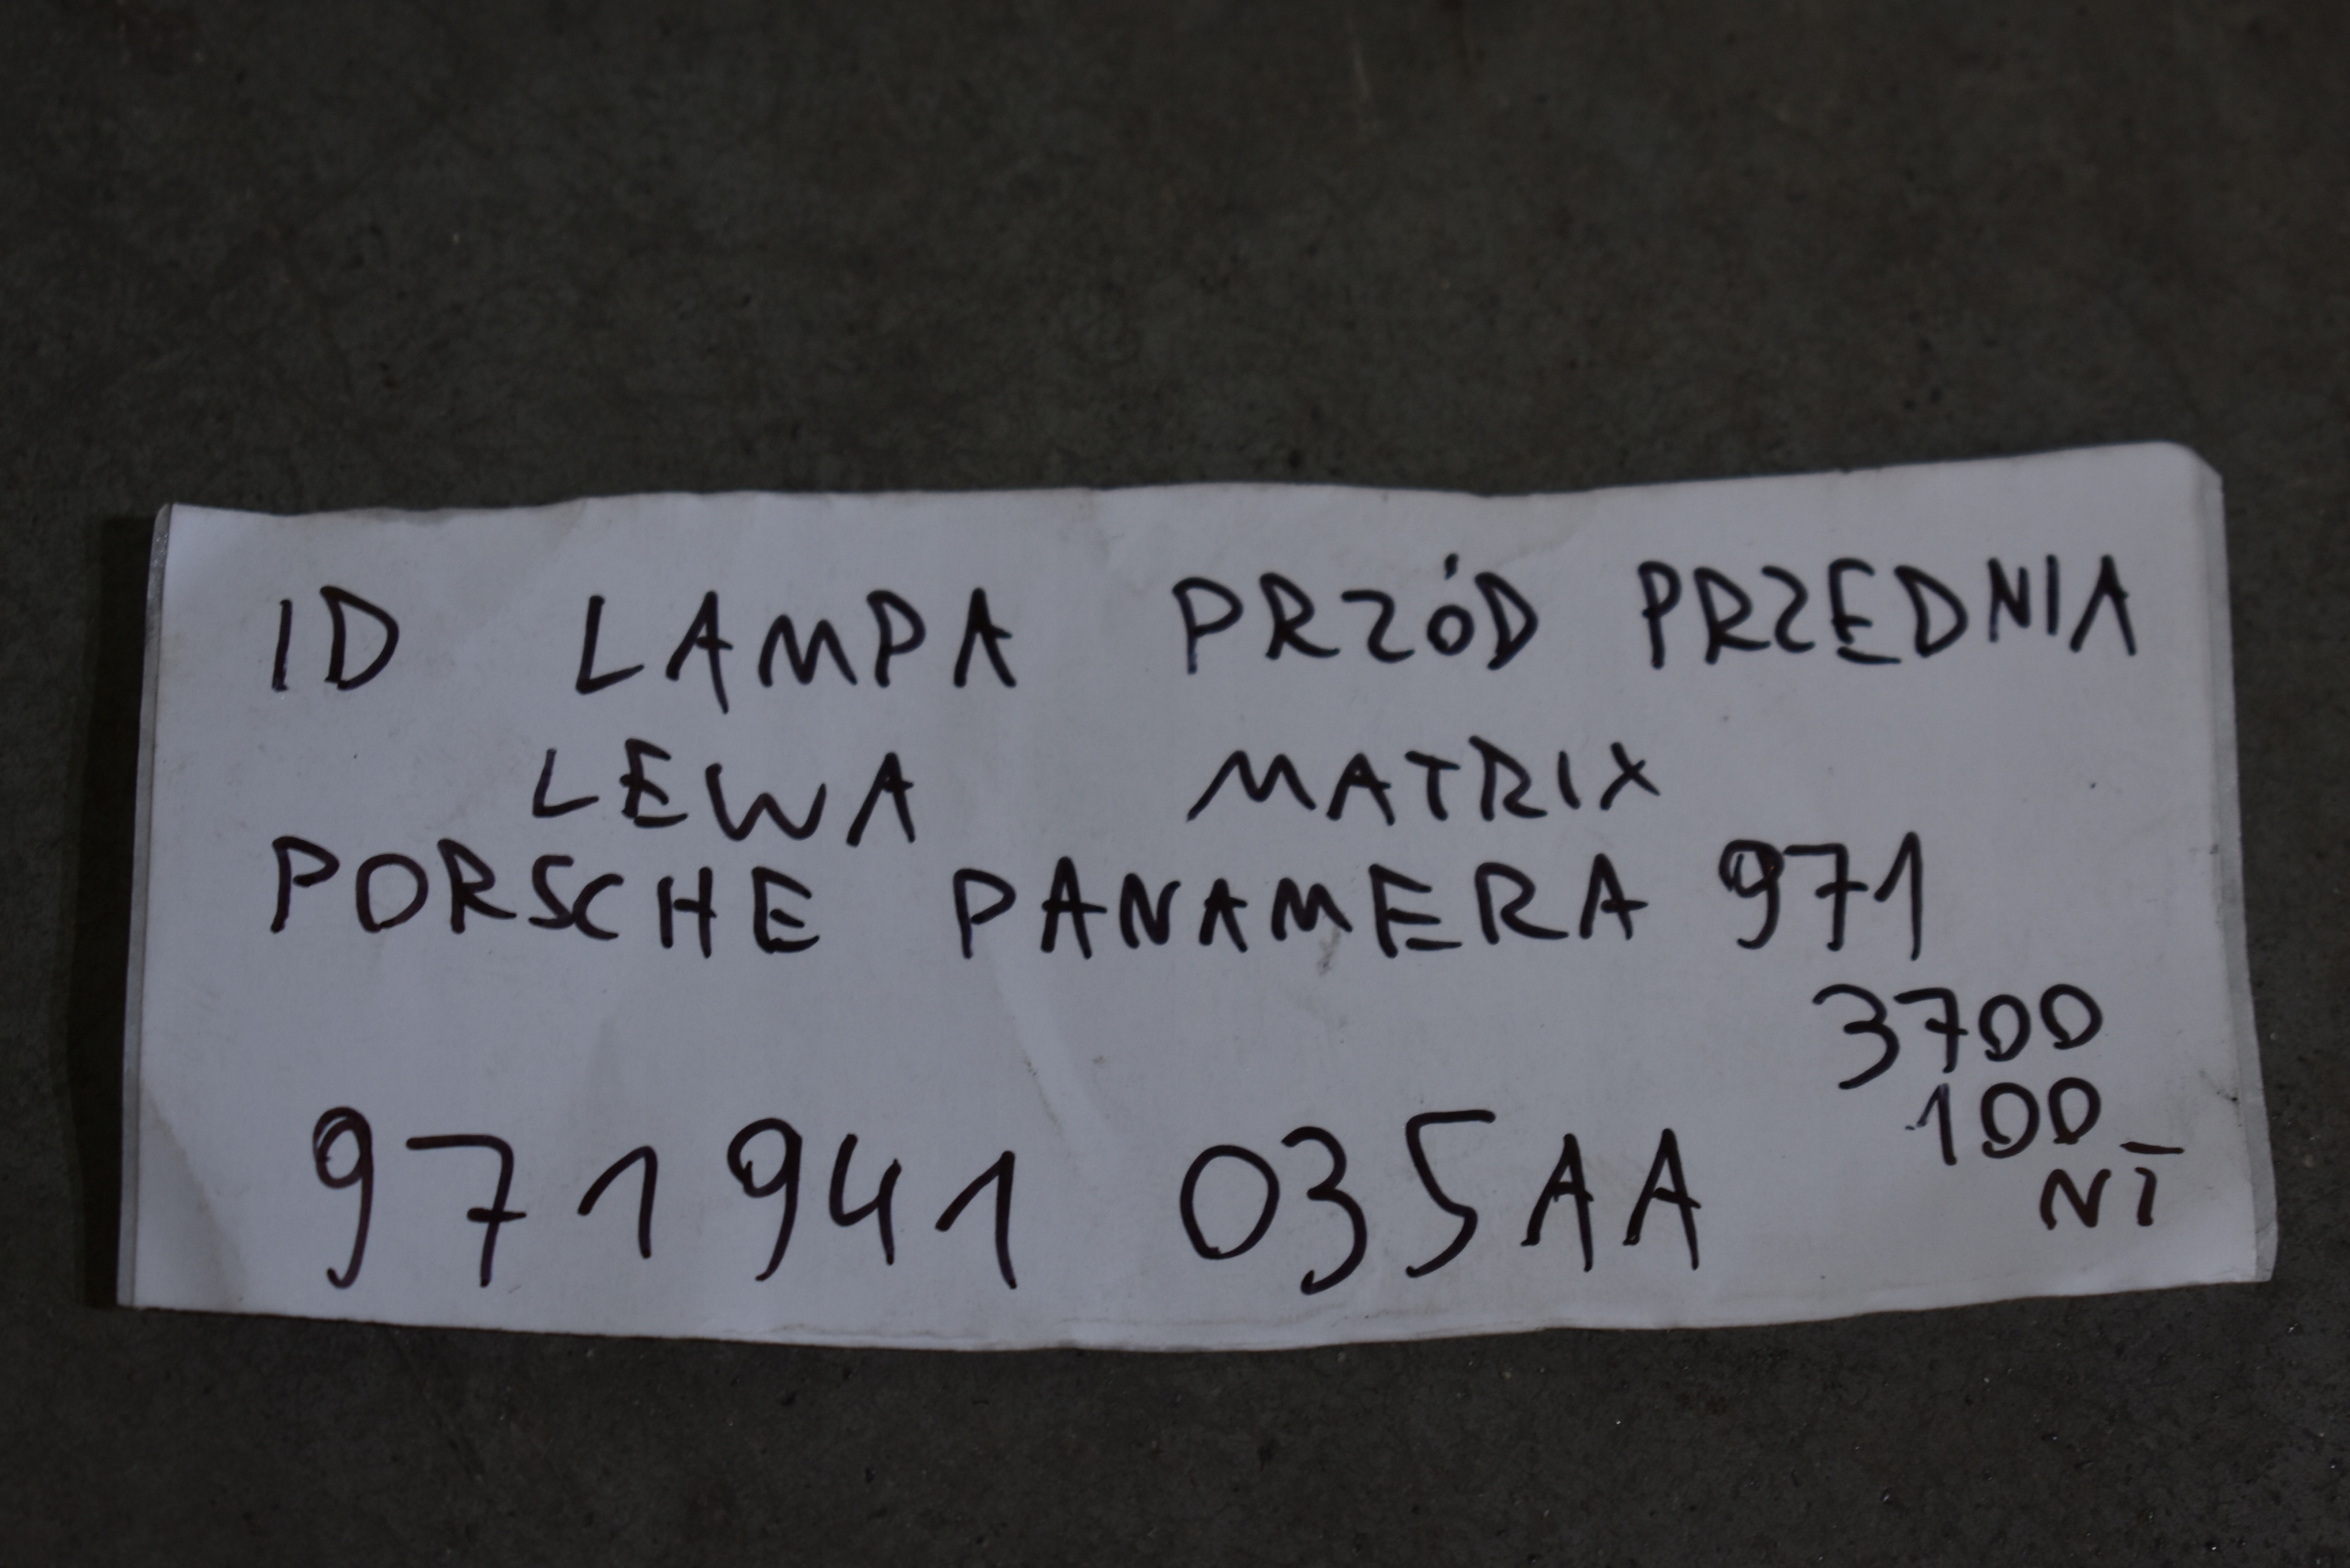 ID LAMPA PRZÓD PRZEDNIA
LEWA MATRIX
PORSCHE PANAMERA 971
3700
100
NI
971941 035AA